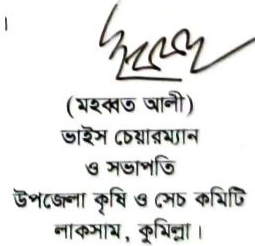 ।
(মহব্বত আলী)
ভাইস চেয়ারম্যান
ও সভাপতি
উপজেলা কৃষি ও সেচ কমিটি
লাকসাম, কুমিল্লা।